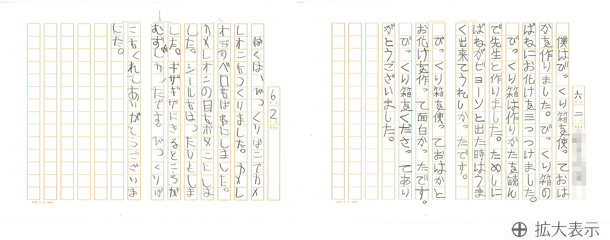 六 二
僕はびっくり箱を使っておば
かを作りました。びっくり箱の
ばねにお化けを三つつけました。
びっくり箱は作りかたを読ん
で先生と作りました。ためしに
ばねがビョーンと出た時はうま
く出来てうれしかったです。
びっくり箱を使っておばかと
お化けを作って面白かったです。
びっくり箱をくださってあり
がとうございました。
6 2
ぼくは、びっくりばこでカメ
レオンをつくりました。カメレ
オンのベロも にしました。
カメレオンの目もボタンにしま
した。シールもはったりとしま
した。ギザギザにきるところが
むずかしかったです。びっくりば
こをくれてありがとうございま
した。
拡大表示